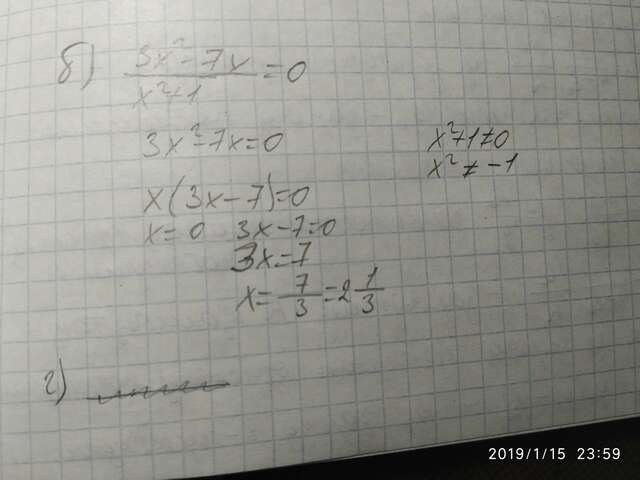 б) (3x²-7x)/(x²+1) = 0
3x²-7x=0
x²+1≠0
x²≠-1
x(3x-7)=0
x=0 3x-7=0
3x=7
x=7/3=2 1/3
г)
2019/1/15 23:59